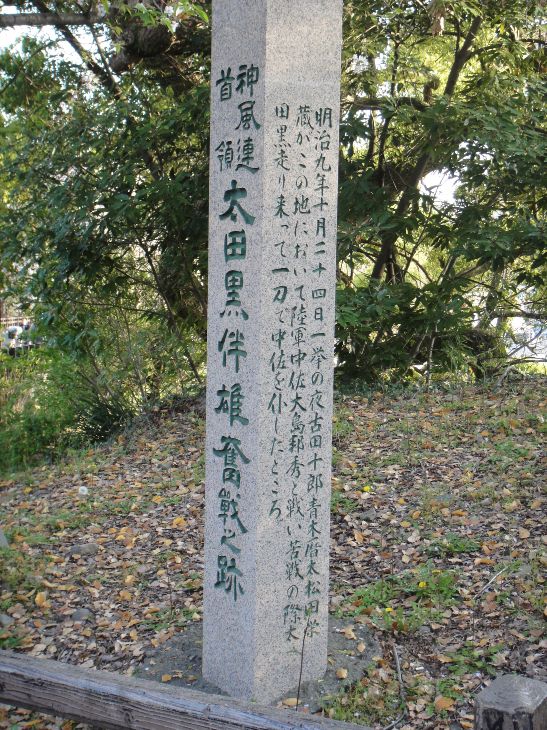 神風連
首領
太田黒伴雄奮戦之跡
明治九年十月二十四日一挙の夜古田十郎青木暦太松田栄
蔵がこの地において陸軍中佐大島邦秀と戦い苦戦の際太
田黒来り来って一刀で中佐を仆したところ